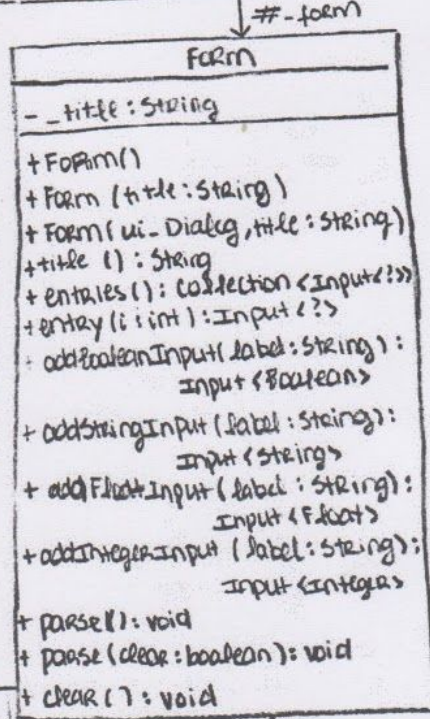 #-form
Form
- _title : String
+ Form()
+ Form (title : String)
+ Form( ui_Dialog, title : String)
+ title () : String
+ entries() : Collection <Input<?>>
+ entry (i : int) : Input <?>
+ addBooleanInput( label : String) :
Input <Boolean>
+ addStringInput ( label : String) :
Input <String>
+ addFloatInput ( label : String) :
Input <Float>
+ addIntegerInput ( label : String) :
Input <Integer>
+ parse() : void
+ parse (clear : boolean) : void
+ clear () : void